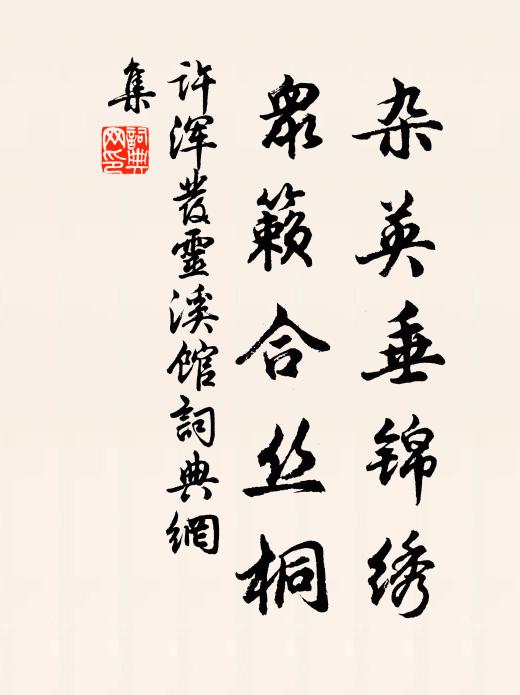 杂英垂锦绣
众籁合丝桐
许浑发灵溪馆词典網
集
詞典網印